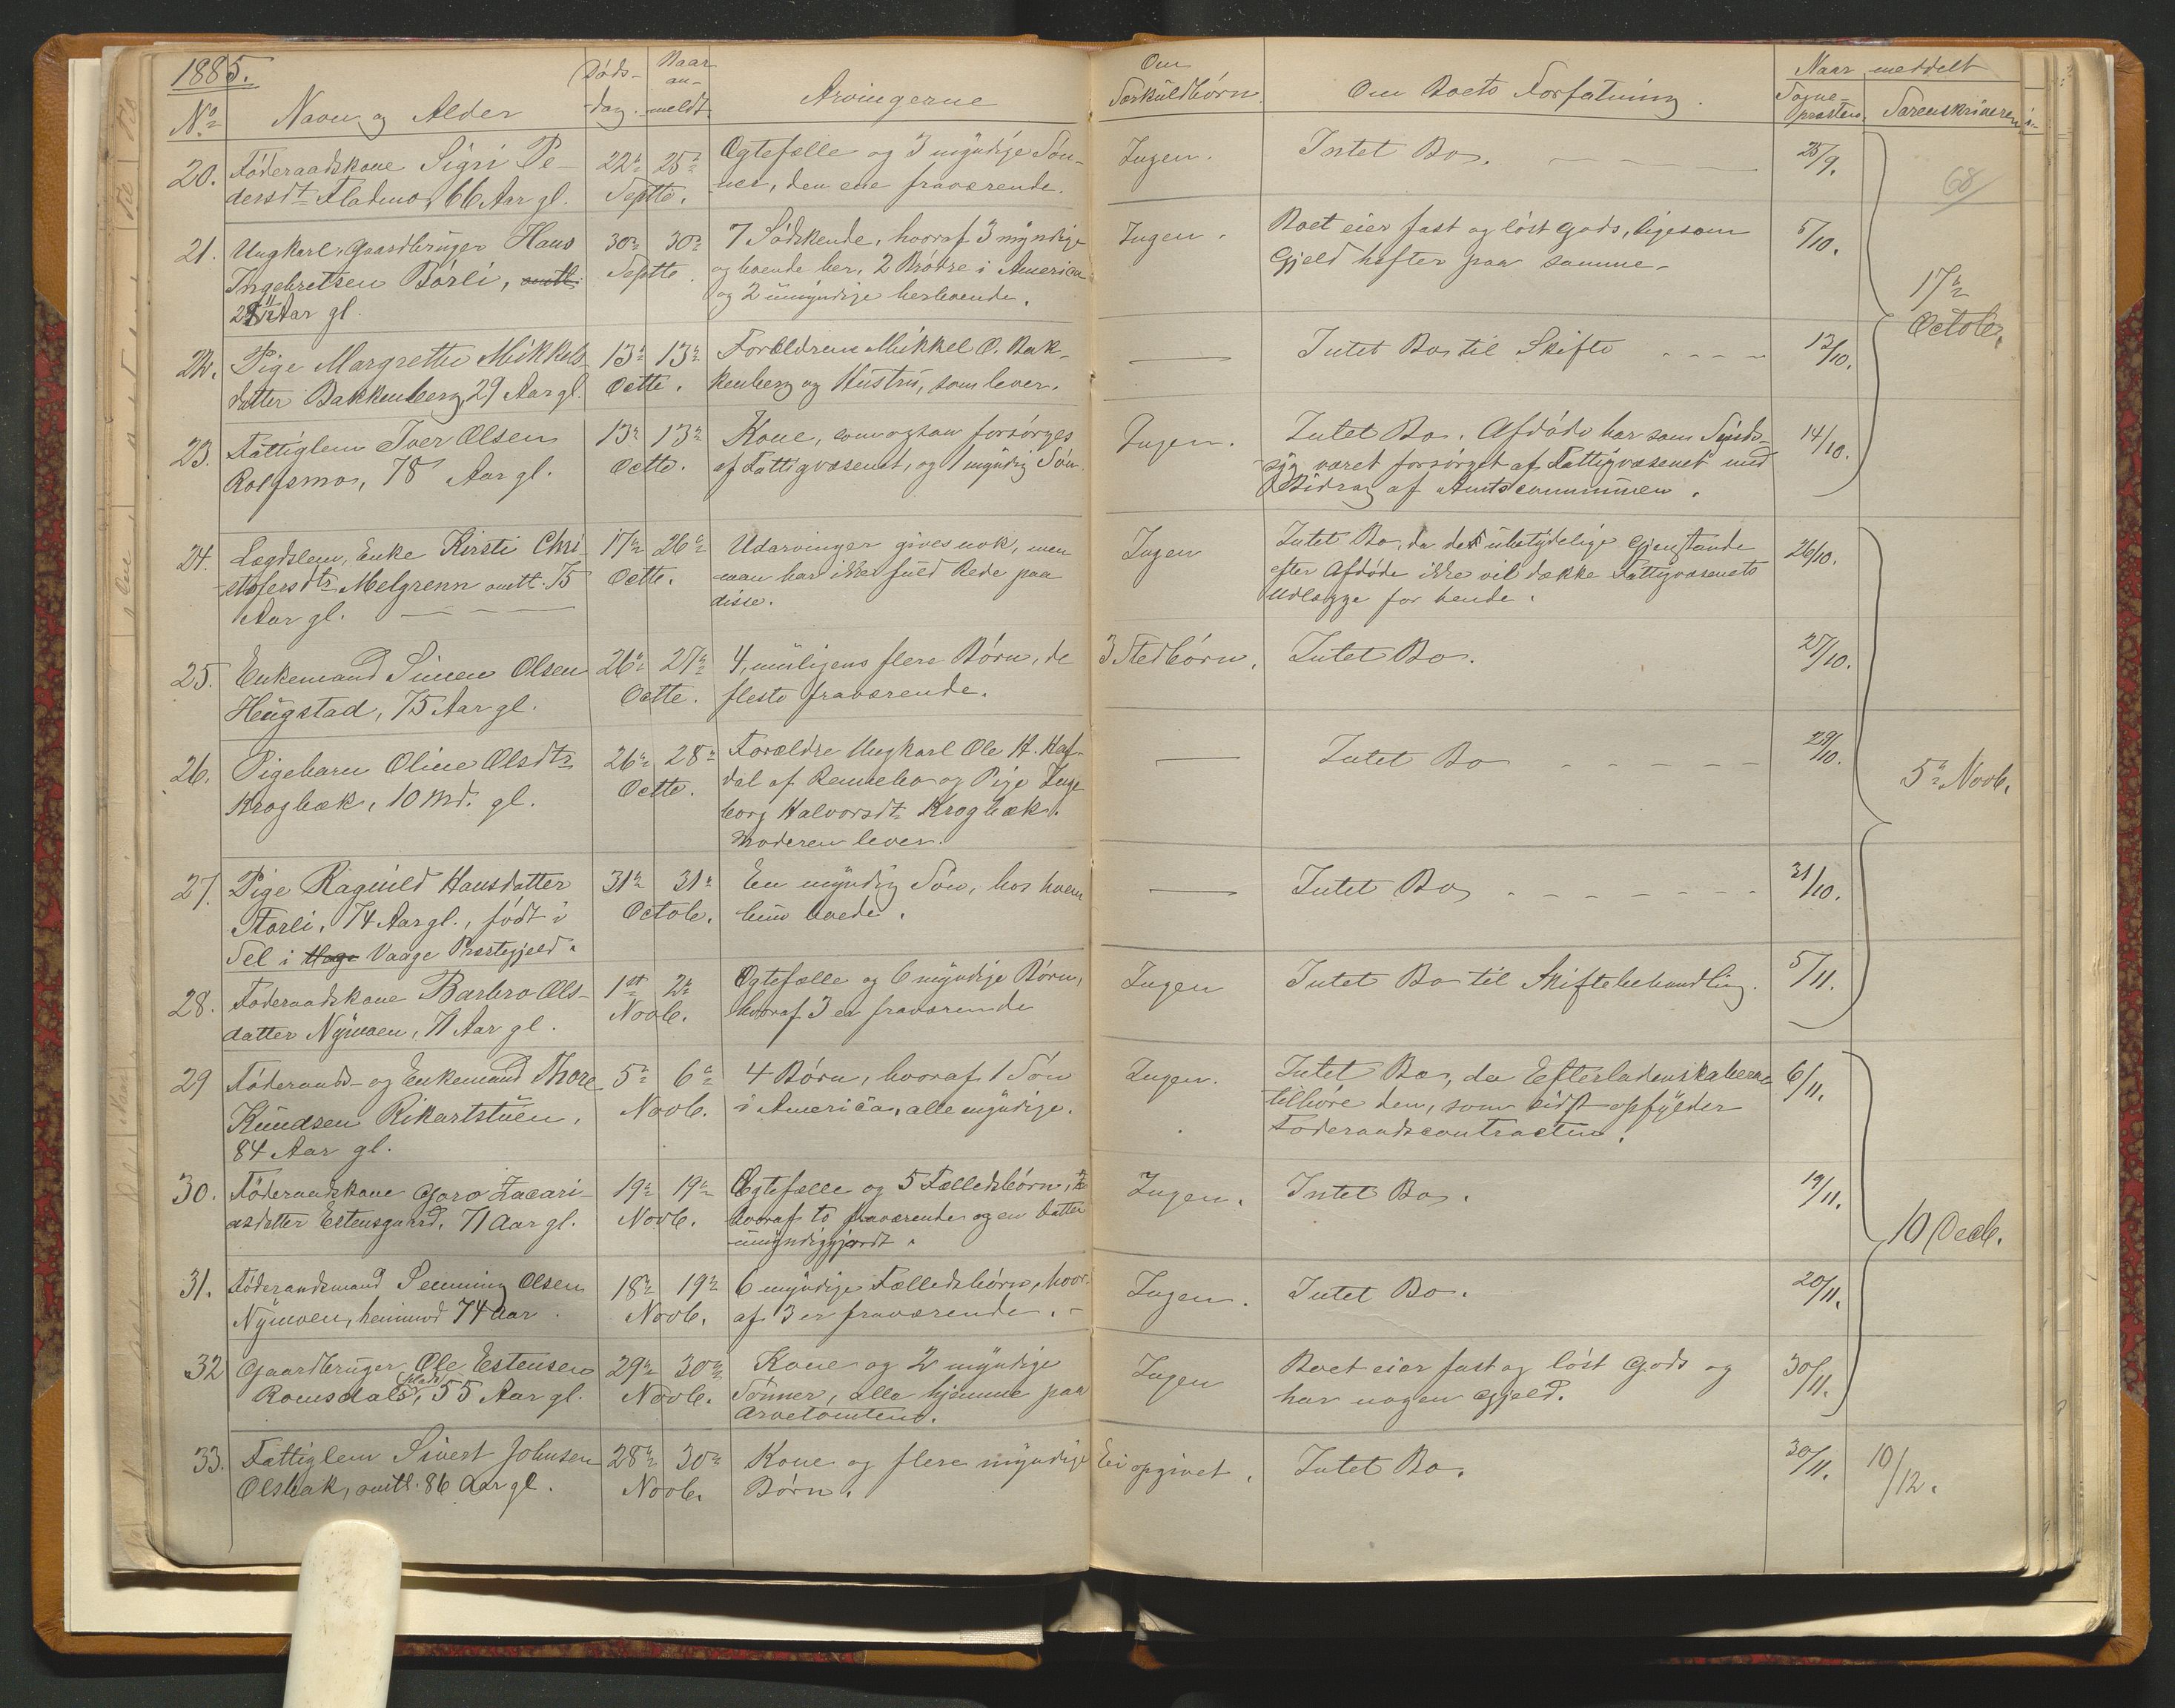 1885.
No Navn og Alder
Døds-
dag.
Naar
an-
meldt.
Arvingerne
Om
Særkuldbørn.
Om Boets Forfatning.
Naar meddelt
Sogne-
præsten.
Sorenskriveren
68/
20. Føderaadskone Sigri Pe-
dersdtr Flatmo, 66 Aar gl.
22de 25de
Septbr.
Ægtefælle og 3 myndige Søn-
ner, den ene fraværende.
Ingen.
Intet Bo.
25/9.
21. Ungkarl, Gaardbruger Hans
Ingebretsen Børli, omtl.
29 Aar gl.
30te 30te
Septbr.
7 Sødskende, hvoraf 3 myndige
og boende her, 2 Brødre i America
og 2 umyndige herboende.
Ingen.
Boet eier fast og løst Gods, ligesom
Gjeld hefter paa samme.
5/10.
17de
Octobr.
22. Pige Margrethe Mikkels-
datter Bakkenberg, 29 Aar gl.
13de 13de
Octbr.
Forældrene Mikkel O. Bak-
kenberg og Hustru, som lever.
Intet Bo til Skifte
13/10.
23. Fattiglem Iver Olsen
Rolfsmo, 78 Aar gl.
13de 13de
Octbr.
Kone, som ogsaa forsørges
af Fattigvæsenet, og 1 myndig Søn.
Ingen.
Intet Bo. Afdøde har som Sinds-
syg været forsørget af Fattigvæsenet med
Bidrag af Amtscommunen.
14/10.
24. Lægdslem, Enke Kirsti Chri-
stofersdtr Melgrenn omtl. 75
Aar gl.
17de 26de
Octbr.
Udarvinger gives nok, men
man har ikke fuld Rede paa
disse.
Ingen
Intet Bo, da de ubetydelige Gjenstande
efter Afdøde ikke vil dække Fattigvæsenets
Udlægge for hende.
26/10.
25. Enkemand Simen Olsen
Haugstad, 75 Aar gl.
26de 27de
Octbr.
4, muligens flere Børn, de
fleste fraværende.
3 Stedbørn.
Intet Bo.
27/10.
26. Pigebarn Oline Olsdtr
Krogbæk, 10 Md. gl.
26de 28de
Octbr.
Forældre Ungkarl Ole H. Haf-
dal af Rennebo og Pige Inge-
borg Halvorsdtr Krogbæk.
Moderen lever.
Intet Bo
29/10.
5te Novb.
27. Pige Ragnild Hansdatter
Storli, 74 Aar gl., født i
Sel i Vaage Præstegjeld.
31te 31te
Octob.
En myndig Søn, hos hvem
hun boede.
Intet Bo
31/10.
28. Føderaadskone Barbro Ols-
datter Nymoen, 71 Aar gl.
1ste 2den
Novb.
Ægtefælle og 6 myndige Børn,
hvoraf 3 er fraværende
Ingen
Intet Bo til Skiftebehandling.
5/11.
29 Føderaads- og Enkemand Thore
Knudsen Rikartstuen,
84 Aar gl.
5te 6te
Novb.
4 Børn, hvoraf 1 Søn
i America, alle myndige.
Ingen.
Intet Bo, da Efterladenskaberne
tilhøre den, som sidst opfylder
Føderaadscontracten.
6/11.
30. Føderaadskone Goro Zacari-
asdatter Estensgaard, 71 Aar gl.
19de 19de
Novb.
Ægtefælle og 5 Fælledsbørn,
hvoraf to fraværende og en Datter
umyndiggjordt.
Ingen.
Intet Bo.
19/11.
10 Decb.
31. Føderaadsmand Semming Olsen
Nymoen, henimod 74 Aar.
18de 19de
Novb.
6 myndige Fælledsbørn, hvor-
af 3 er fraværende.
Ingen.
Intet Bo.
20/11.
32 Gaardbruger Ole Estensen
Romsdalsplads, 55 Aar gl.
29de 30te
Novb.
Kone og 2 myndige
Sønner, alle hjemme paa
Arvetomten.
Ingen
Boet eier fast og løst Gods og
har nogen Gjeld.
30/11.
33. Fattiglem Sivert Johnsen
Olsbak, omtl. 86 Aar gl.
28de 30te
Novb.
Kone og flere myndige
Børn.
Ei opgivet.
Intet Bo.
30/11.
10/12.